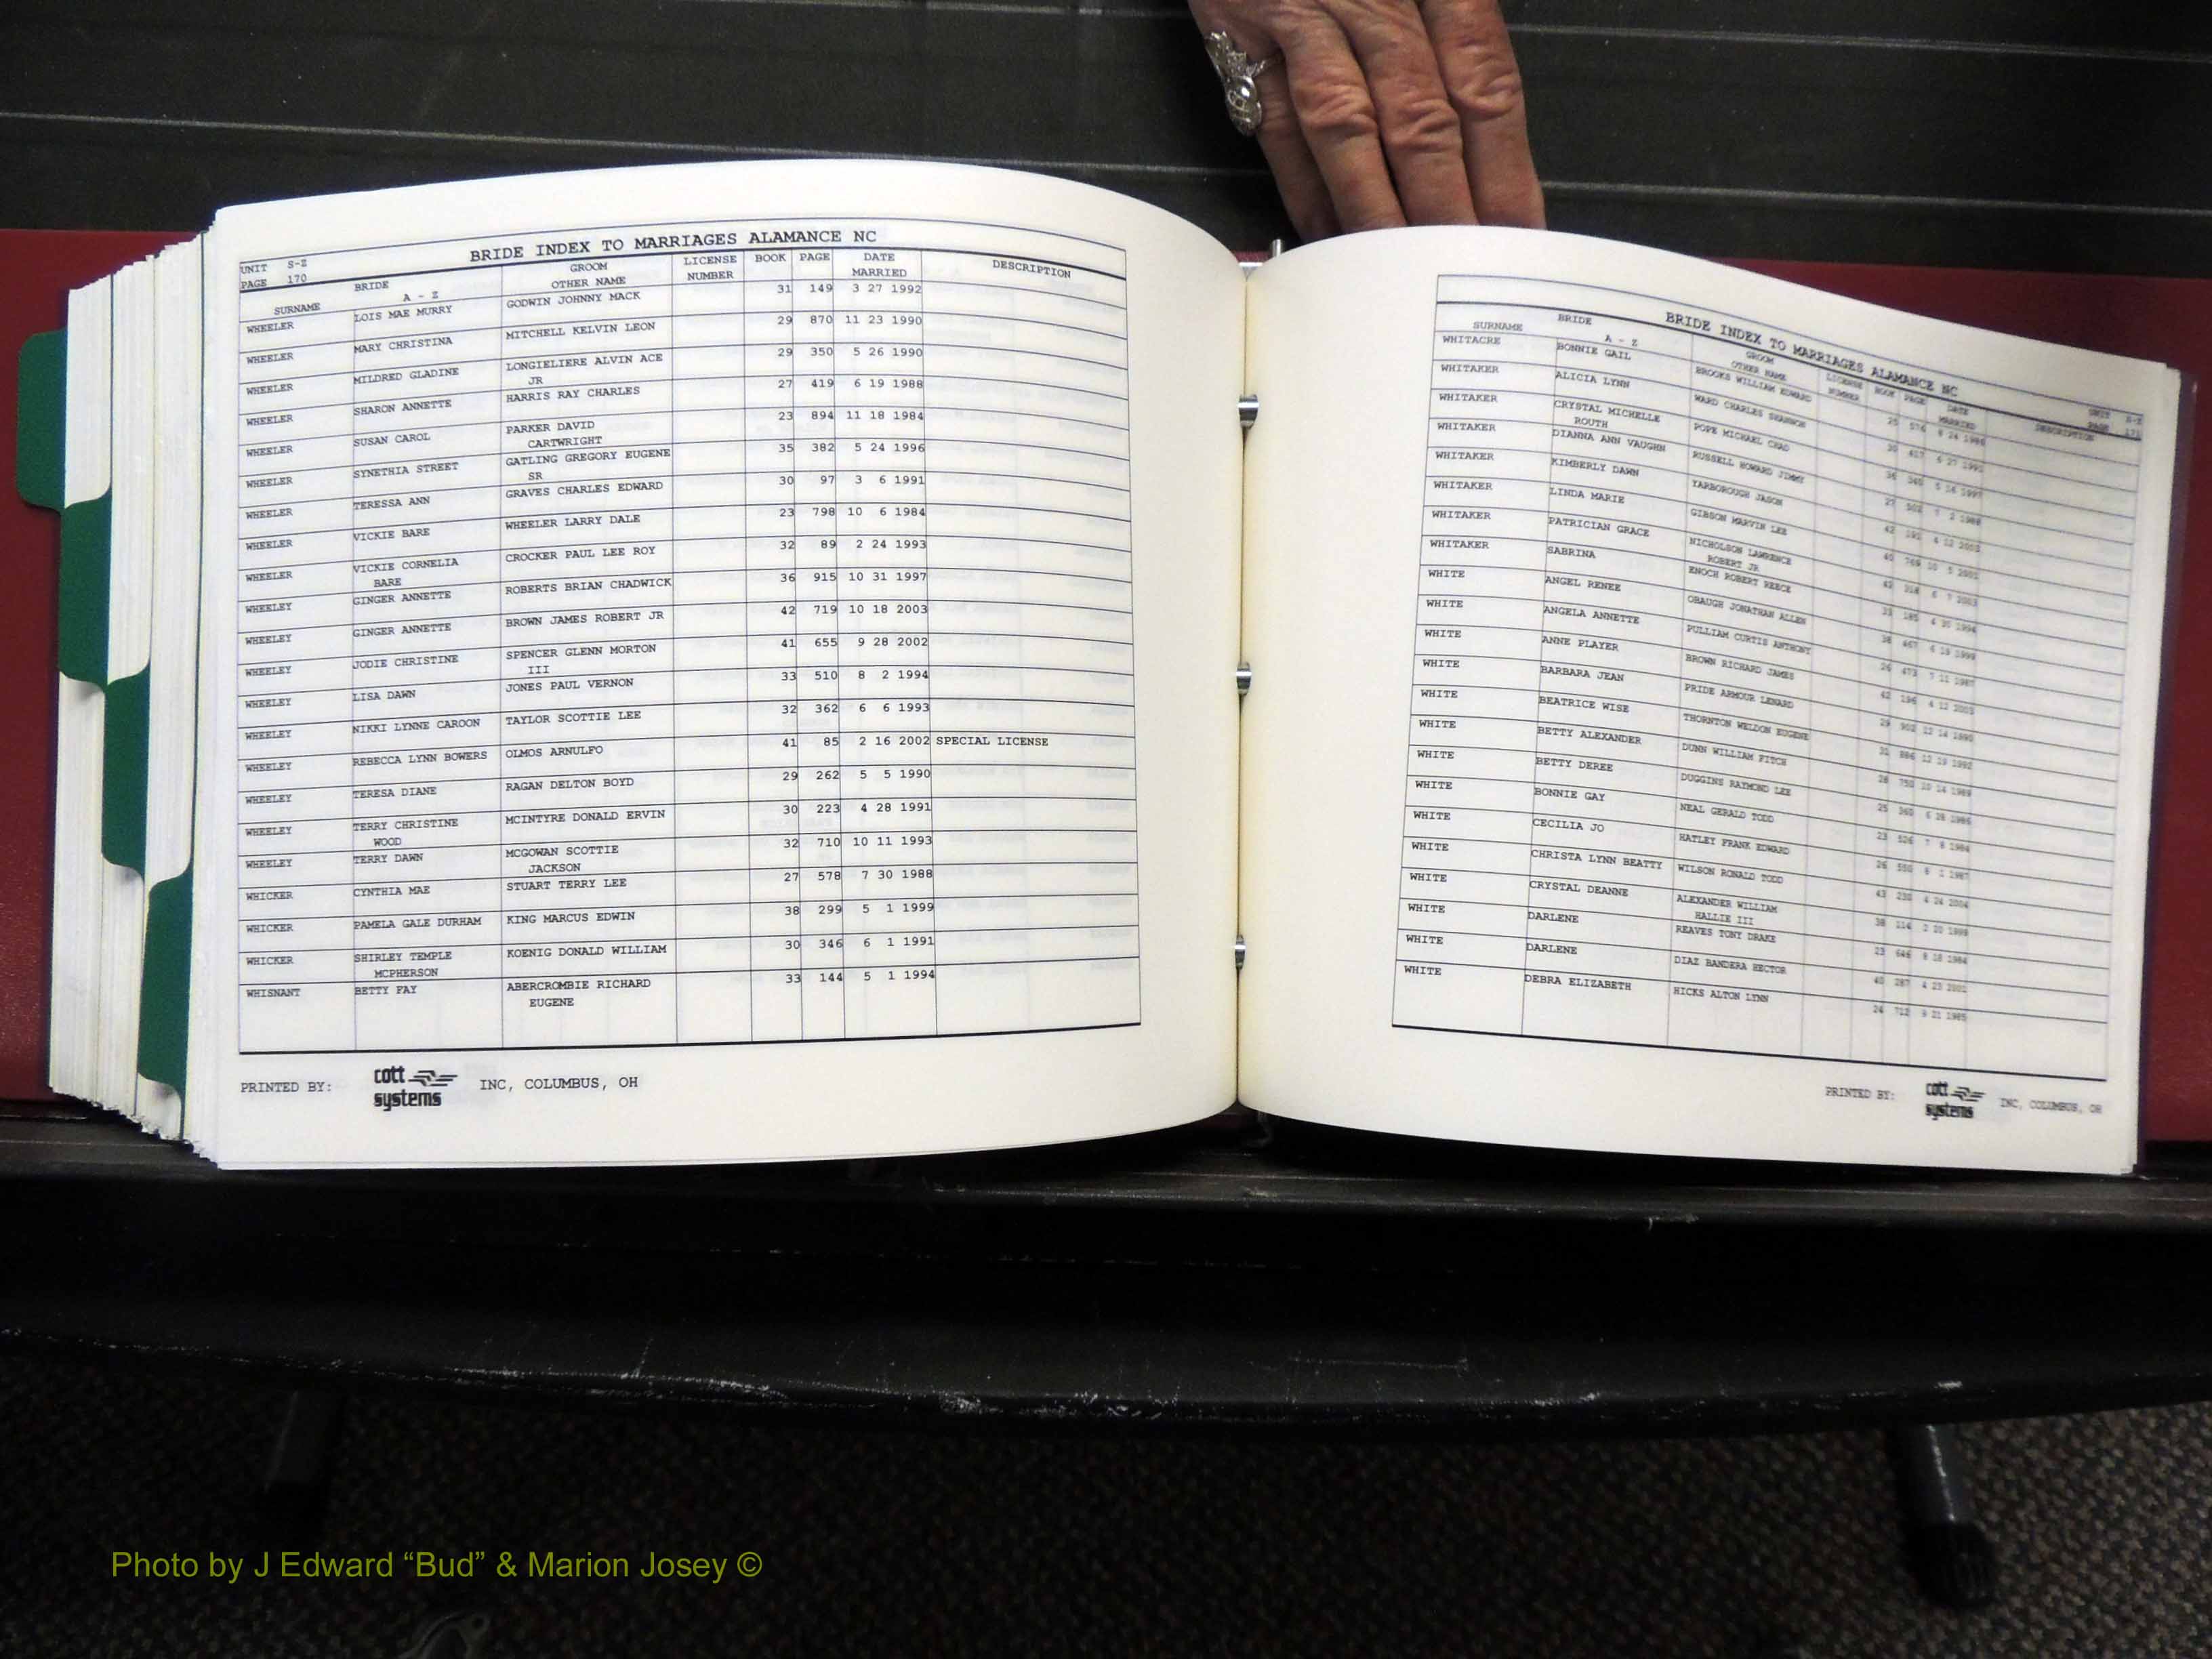 BRIDE INDEX TO MARRIAGES ALAMANCE NC
UNIT S-Z
PAGE 170
SURNAME BRIDE A - Z GROOM OTHER NAME LICENSE NUMBER BOOK PAGE DATE MARRIED DESCRIPTION
WHEELER LOIS MAE MURRY GODWIN JOHNNY MACK 31 149 3 27 1992
WHEELER MARY CHRISTINA MITCHELL KELVIN LEON 29 870 11 23 1990
WHEELER MILDRED GLADINE LONGIELIERE ALVIN ACE JR 29 350 5 26 1990
WHEELER SHARON ANNETTE HARRIS RAY CHARLES 27 419 6 19 1988
WHEELER SUSAN CAROL PARKER DAVID CARTWRIGHT 23 894 11 18 1984
WHEELER SYNETHIA STREET GATLING GREGORY EUGENE SR 35 382 5 24 1996
WHEELER TERESSA ANN GRAVES CHARLES EDWARD 30 97 3 6 1991
WHEELER VICKIE BARE WHEELER LARRY DALE 23 798 10 6 1984
WHEELER VICKIE CORNELIA BARE CROCKER PAUL LEE ROY 32 89 2 24 1993
WHEELEY GINGER ANNETTE ROBERTS BRIAN CHADWICK 36 915 10 31 1997
WHEELEY GINGER ANNETTE BROWN JAMES ROBERT JR 42 719 10 18 2003
WHEELEY JODIE CHRISTINE SPENCER GLENN MORTON III 41 655 9 28 2002
WHEELEY LISA DAWN JONES PAUL VERNON 33 510 8 2 1994
WHEELEY NIKKI LYNNE CAROON TAYLOR SCOTTIE LEE 32 362 6 6 1993
WHEELEY REBECCA LYNN BOWERS OLMOS ARNULFO 41 85 2 16 2002 SPECIAL LICENSE
WHEELEY TERESA DIANE RAGAN DELTON BOYD 29 262 5 5 1990
WHEELEY TERRY CHRISTINE WOOD MCINTYRE DONALD ERVIN 30 223 4 28 1991
WHEELEY TERRY DAWN MCGOWAN SCOTTIE JACKSON 32 710 10 11 1993
WHICKER CYNTHIA MAE STUART TERRY LEE 27 578 7 30 1988
WHICKER PAMELA GALE DURHAM KING MARCUS EDWIN 38 299 5 1 1999
WHICKER SHIRLEY TEMPLE MCPHERSON KOENIG DONALD WILLIAM 30 346 6 1 1991
WHISNANT BETTY FAY ABERCROMBIE RICHARD EUGENE 33 144 5 1 1994
PRINTED BY: cott systems INC, COLUMBUS, OH
BRIDE INDEX TO MARRIAGES ALAMANCE NC
UNIT S-Z
PAGE 171
SURNAME BRIDE A - Z GROOM OTHER NAME LICENSE NUMBER BOOK PAGE DATE MARRIED DESCRIPTION
WHITACRE BONNIE GAIL BROOKS WILLIAM EDWARD
WHITAKER ALICIA LYNN WARD CHARLES SHANNON
WHITAKER CRYSTAL MICHELLE ROUTH POPE MICHAEL CHAD
WHITAKER DIANNA ANN VAUGHN RUSSELL HOWARD JIMMY
WHITAKER KIMBERLY DAWN YARBOROUGH JASON
WHITAKER LINDA MARIE GIBSON MARVIN LEE
WHITAKER PATRICIAN GRACE NICHOLSON LAWRENCE ROBERT JR
WHITAKER SABRINA ENOCH ROBERT REECE
WHITE ANGEL RENEE OBAUGH JONATHAN ALLEN
WHITE ANGELA ANNETTE PULLIAM CURTIS ANTHONY
WHITE ANNE PLAYER BROWN RICHARD JAMES
WHITE BARBARA JEAN PRIDE ARMOUR LENARD
WHITE BEATRICE WISE THORNTON WELDON EUGENE
WHITE BETTY ALEXANDER DUNN WILLIAM FITCH
WHITE BETTY DEREE DUGGINS RAYMOND LEE
WHITE BONNIE GAY NEAL GERALD TODD
WHITE CECILIA JO HATLEY FRANK EDWARD
WHITE CHRISTA LYNN BEATTY WILSON RONALD TODD
WHITE CRYSTAL DEANNE ALEXANDER WILLIAM HALLIE III
WHITE DARLENE REAVES TONY DRAKE
WHITE DARLENE DIAZ BANDERA HECTOR
WHITE DEBRA ELIZABETH HICKS ALTON LYNN
PRINTED BY: cott systems INC, COLUMBUS, OH
Photo by J Edward “Bud” & Marion Josey ©